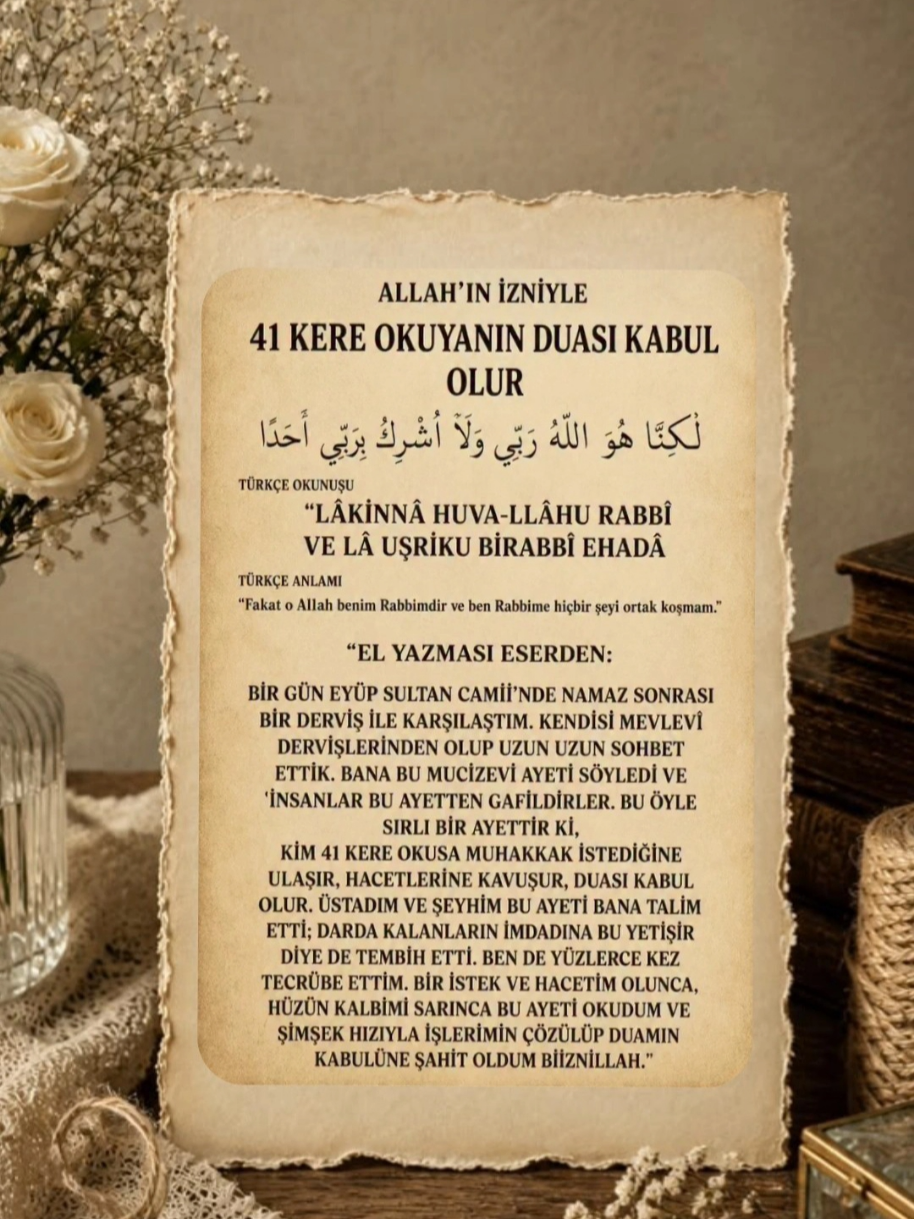 ALLAH'IN İZNİYLE
41 KERE OKUYANIN DUASI KABUL
OLUR
لَٰكِنَّا هُوَ اللّٰهُ رَبِّي وَلَآ اُشْرِكُ بِرَبِّي أَحَدًا
TÜRKÇE OKUNUŞU
“LÂKİNNÂ HUVA-LLÂHU RABBÎ
VE LÂ UŞRİKU BİRABBÎ EHADÂ
TÜRKÇE ANLAMI
“Fakat o Allah benim Rabbimdir ve ben Rabbime hiçbir şeyi ortak koşmam.”
“EL YAZMASI ESERDEN:
BİR GÜN EYÜP SULTAN CAMİİ'NDE NAMAZ SONRASI
BİR DERVİŞ İLE KARŞILAŞTIM. KENDİSİ MEVLEVÎ
DERVİŞLERİNDEN OLUP UZUN UZUN SOHBET
ETTİK. BANA BU MUCİZEVİ AYETİ SÖYLEDİ VE
'İNSANLAR BU AYETTEN GAFİLDİRLER. BU ÖYLE
SIRLI BİR AYETTİR Kİ,
KİM 41 KERE OKUSA MUHAKKAK İSTEDİĞİNE
ULAŞIR, HACETLERİNE KAVUŞUR, DUASI KABUL
OLUR. ÜSTADIM VE ŞEYHİM BU AYETİ BANA TALİM
ETTİ; DARDA KALANLARIN İMDADINA BU YETİŞİR
DİYE DE TEMBİH ETTİ. BEN DE YÜZLERCE KEZ
TECRÜBE ETTİM. BİR İSTEK VE HACETİM OLUNCA,
HÜZÜN KALBİMİ SARINCA BU AYETİ OKUDUM VE
ŞİMŞEK HIZIYLA İŞLERİMİN ÇÖZÜLÜP DUAMIN
KABULÜNE ŞAHİT OLDUM BİİZNİLLAH."